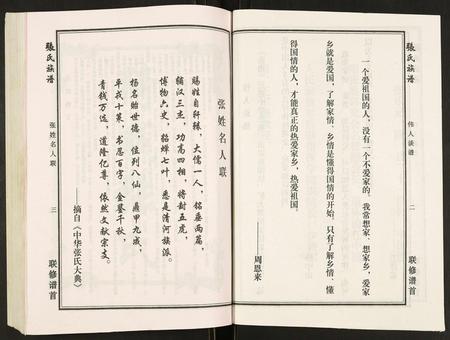 張氏族谱
伟人谈谱
二
联修谱首
一个爱祖国的人，没有一个不爱家的。我常想家、想家乡，爱家
乡就是爱国，了解家情、乡情是懂得国情的开始，只有了解乡情、懂
得国情的人，才能真正的热爱家乡，热爱祖国。
——周恩来
张姓名人联
赐姓自轩辕，大儒一人，铭垂两篇，
辅汉三杰，功高四相，将封五虎，
博物六史，貂蝉七叶，悉是清河族派。
杨名贻世德，位列八仙，鼎甲九成，
平戎十策，书忍百字，金鉴千秋，
青钱万选，道隆亿尊，依然文献宗支。
——摘自《中华张氏大典》
張氏族谱
张姓名人联
三
联修谱首